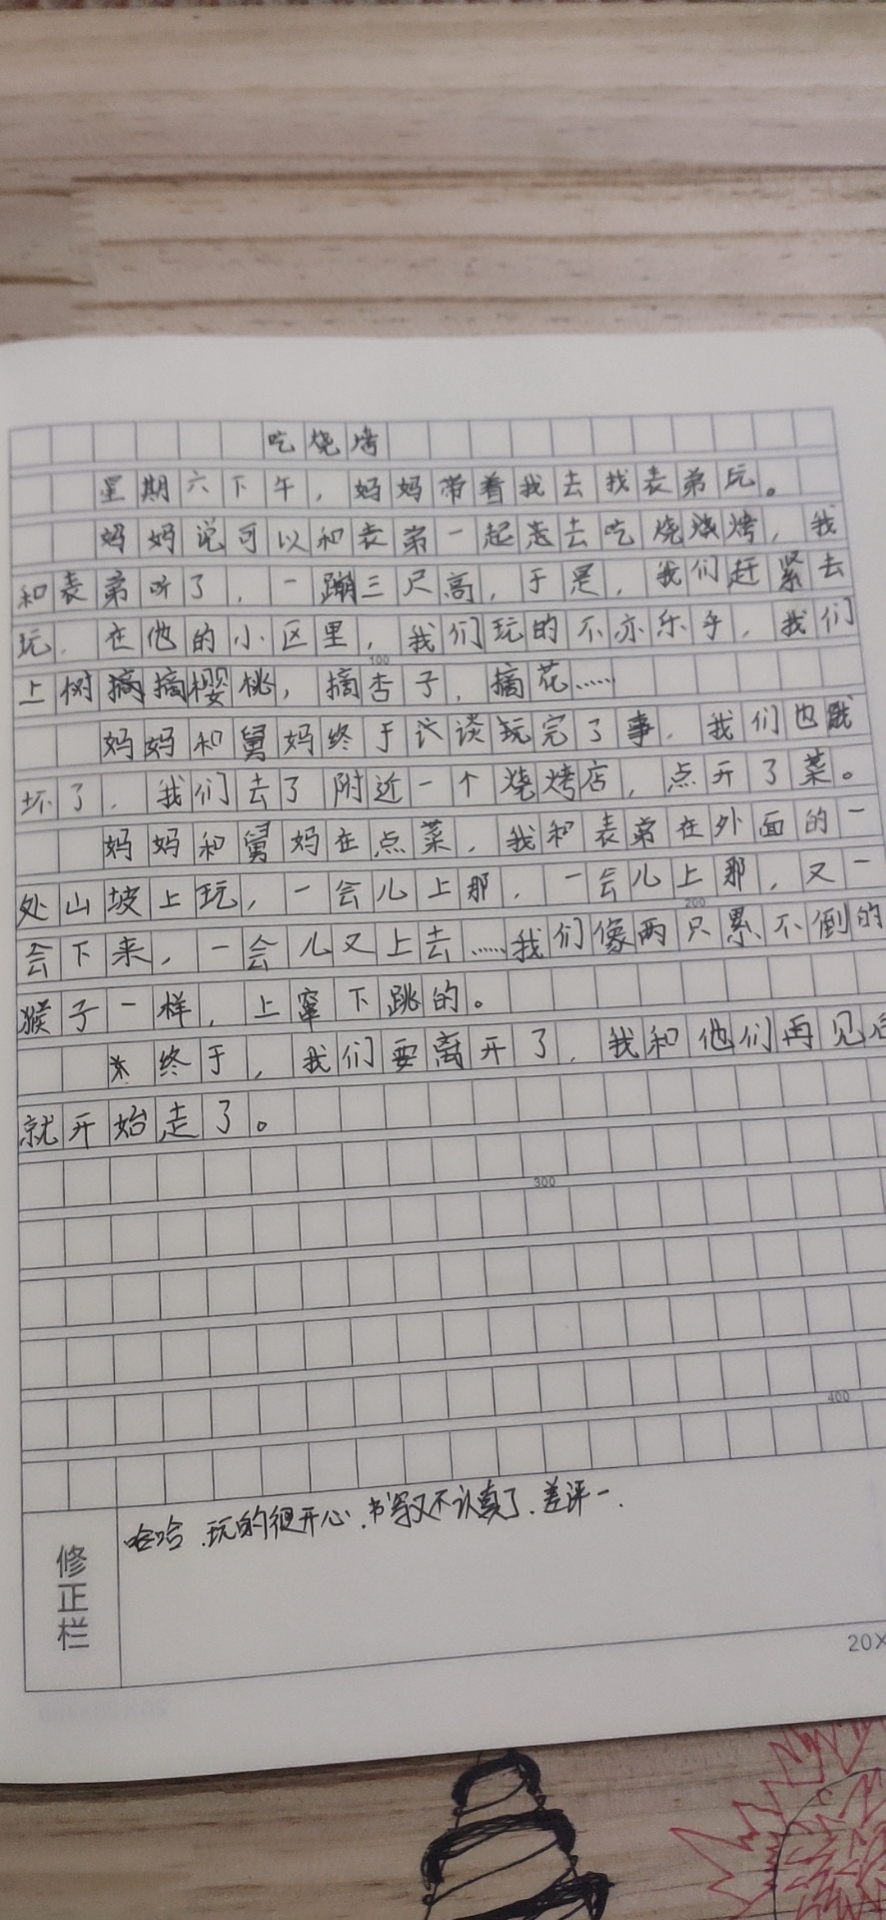 吃烧烤
星期六下午，妈妈带着我去找表弟玩。
妈妈说可以和表弟一起去吃烧烤，我
和表弟听了，一蹦三尺高，于是，我们赶紧去
玩，在他的小区里，我们玩的不亦乐乎，我们
100
上树摘樱桃，摘杏子，摘花……
妈妈和舅妈终于谈完了事，我们也饿
坏了，我们去了附近一个烧烤店，点开了菜。
妈妈和舅妈在点菜，我和表弟在外面的一
处山坡上玩，一会儿上那，一会儿上那，又一
200
会下来，一会儿又上去……我们像两只累不倒的
猴子一样，上窜下跳的。
终于，我们要离开了，我和他们再见后
就开始走了。
300
400
哈哈，玩的很开心，书写又不认真了，差评一.
修正栏
20X